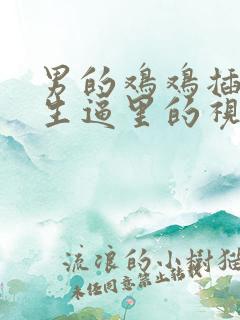 男的鸡鸡插
生逼里的视
流浪的小树猫
未任同意禁止转载